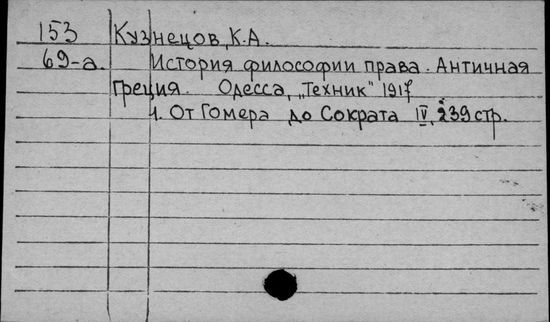 153 Кузнецов, К.А.
69-а. История философии права. Античная
Греция. Одесса, „Техник" 1917
ч. От Гомера до Сократа IV, 239 стр.